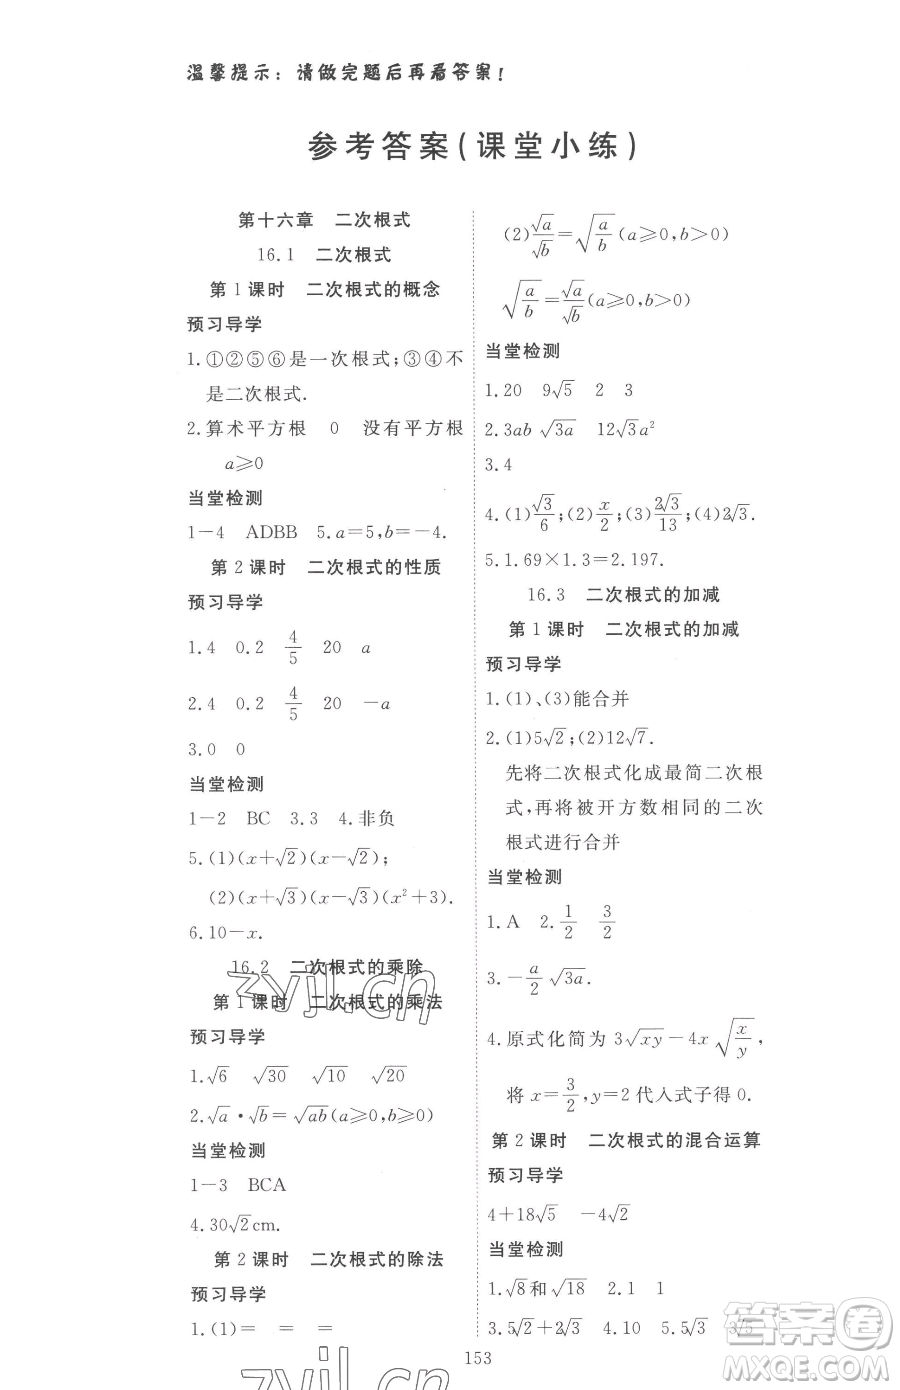 温馨提示：请做完题后再看答案！
参考答案(课堂小练)
第十六章　二次根式
16.1　二次根式
第1课时　二次根式的概念
预习导学
1.①②⑤⑥是一次根式;③④不
是二次根式.
2.算术平方根　0　没有平方根
a≥0
当堂检测
1－4　ADBB　5.a＝5,b＝－4.
第2课时　二次根式的性质
预习导学
1.4　0.2　4/5　20　a
2.4　0.2　4/5　20　－a
3.0　0
当堂检测
1－2　BC　3.3　4.非负
5.(1)(x＋√2)(x－√2);
(2)(x＋√3)(x－√3)(x²＋3).
6.10－x.
16.2　二次根式的乘除
第1课时　二次根式的乘法
预习导学
1.√6　√30　√10　√20
2.√a·√b＝√ab(a≥0,b≥0)
当堂检测
1－3　BCA
4.30√2cm.
第2课时　二次根式的除法
预习导学
1.(1)＝　＝　＝
(2)√a/√b＝√(a/b)(a≥0,b>0)
√(a/b)＝√a/√b(a≥0,b>0)
当堂检测
1.20　9√5　2　3
2.3ab√3a　12√3a²
3.4
4.(1)√3/6;(2)x/2;(3)2√3/13;(4)2√3.
5.1.69×1.3＝2.197.
16.3　二次根式的加减
第1课时　二次根式的加减
预习导学
1.(1)、(3)能合并
2.(1)5√2;(2)12√7.
先将二次根式化成最简二次根
式,再将被开方数相同的二次
根式进行合并
当堂检测
1.A　2.1/2　3/2
3.－a/2√3a.
4.原式化简为3√xy－4x√(x/y),
将x＝3/2,y＝2代人式子得0.
第2课时　二次根式的混合运算
预习导学
4＋18√5　－4√2
当堂检测
1.√8和√18　2.1　1
3.5√2＋2√3　4.10　5.5√3　3√5
153
zyjl.cn
zyjl.cn
答案圈
MXQE.COM